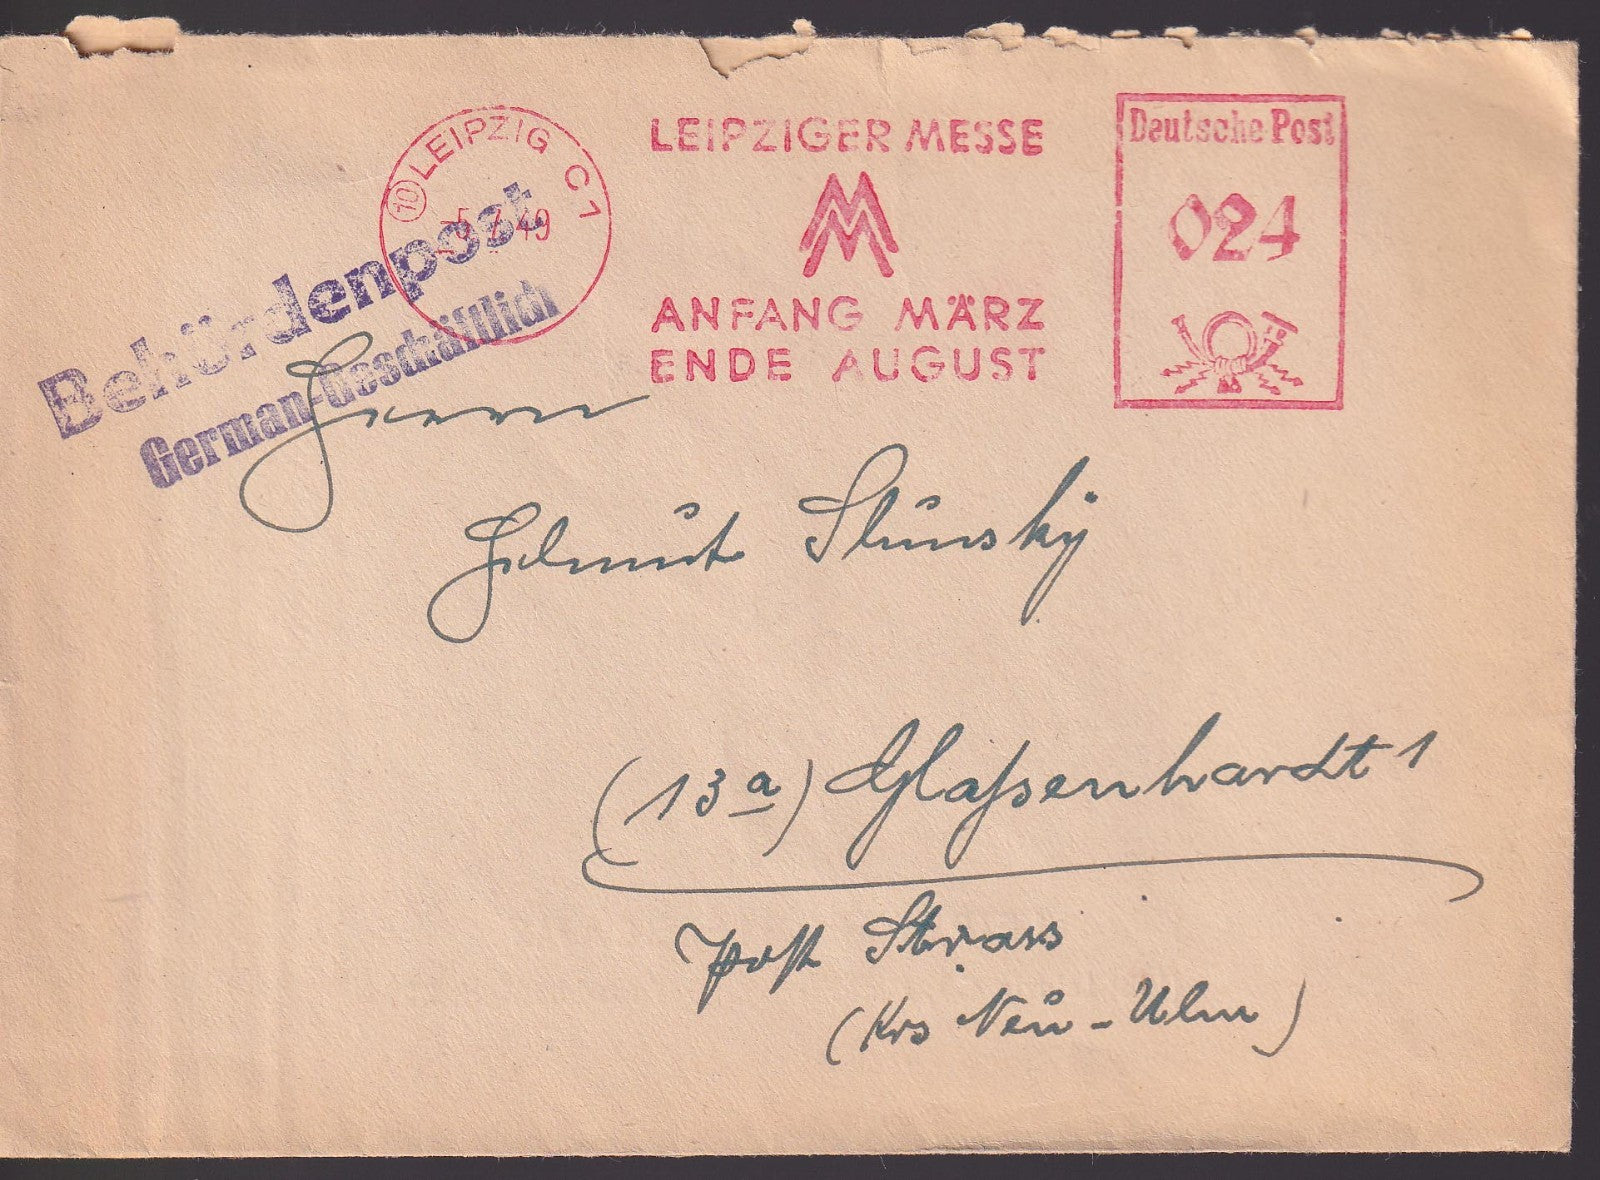 (10) LEIPZIG C1
-5.7.49
LEIPZIGER MESSE
MM
ANFANG MÄRZ
ENDE AUGUST
Deutsche Post
024
Behördenpost
German-Geschäftlich
Herrn
Helmut Slunsky
(13a) Glaßenhardt 1
Post Strass
(Krs Neu-Ulm)